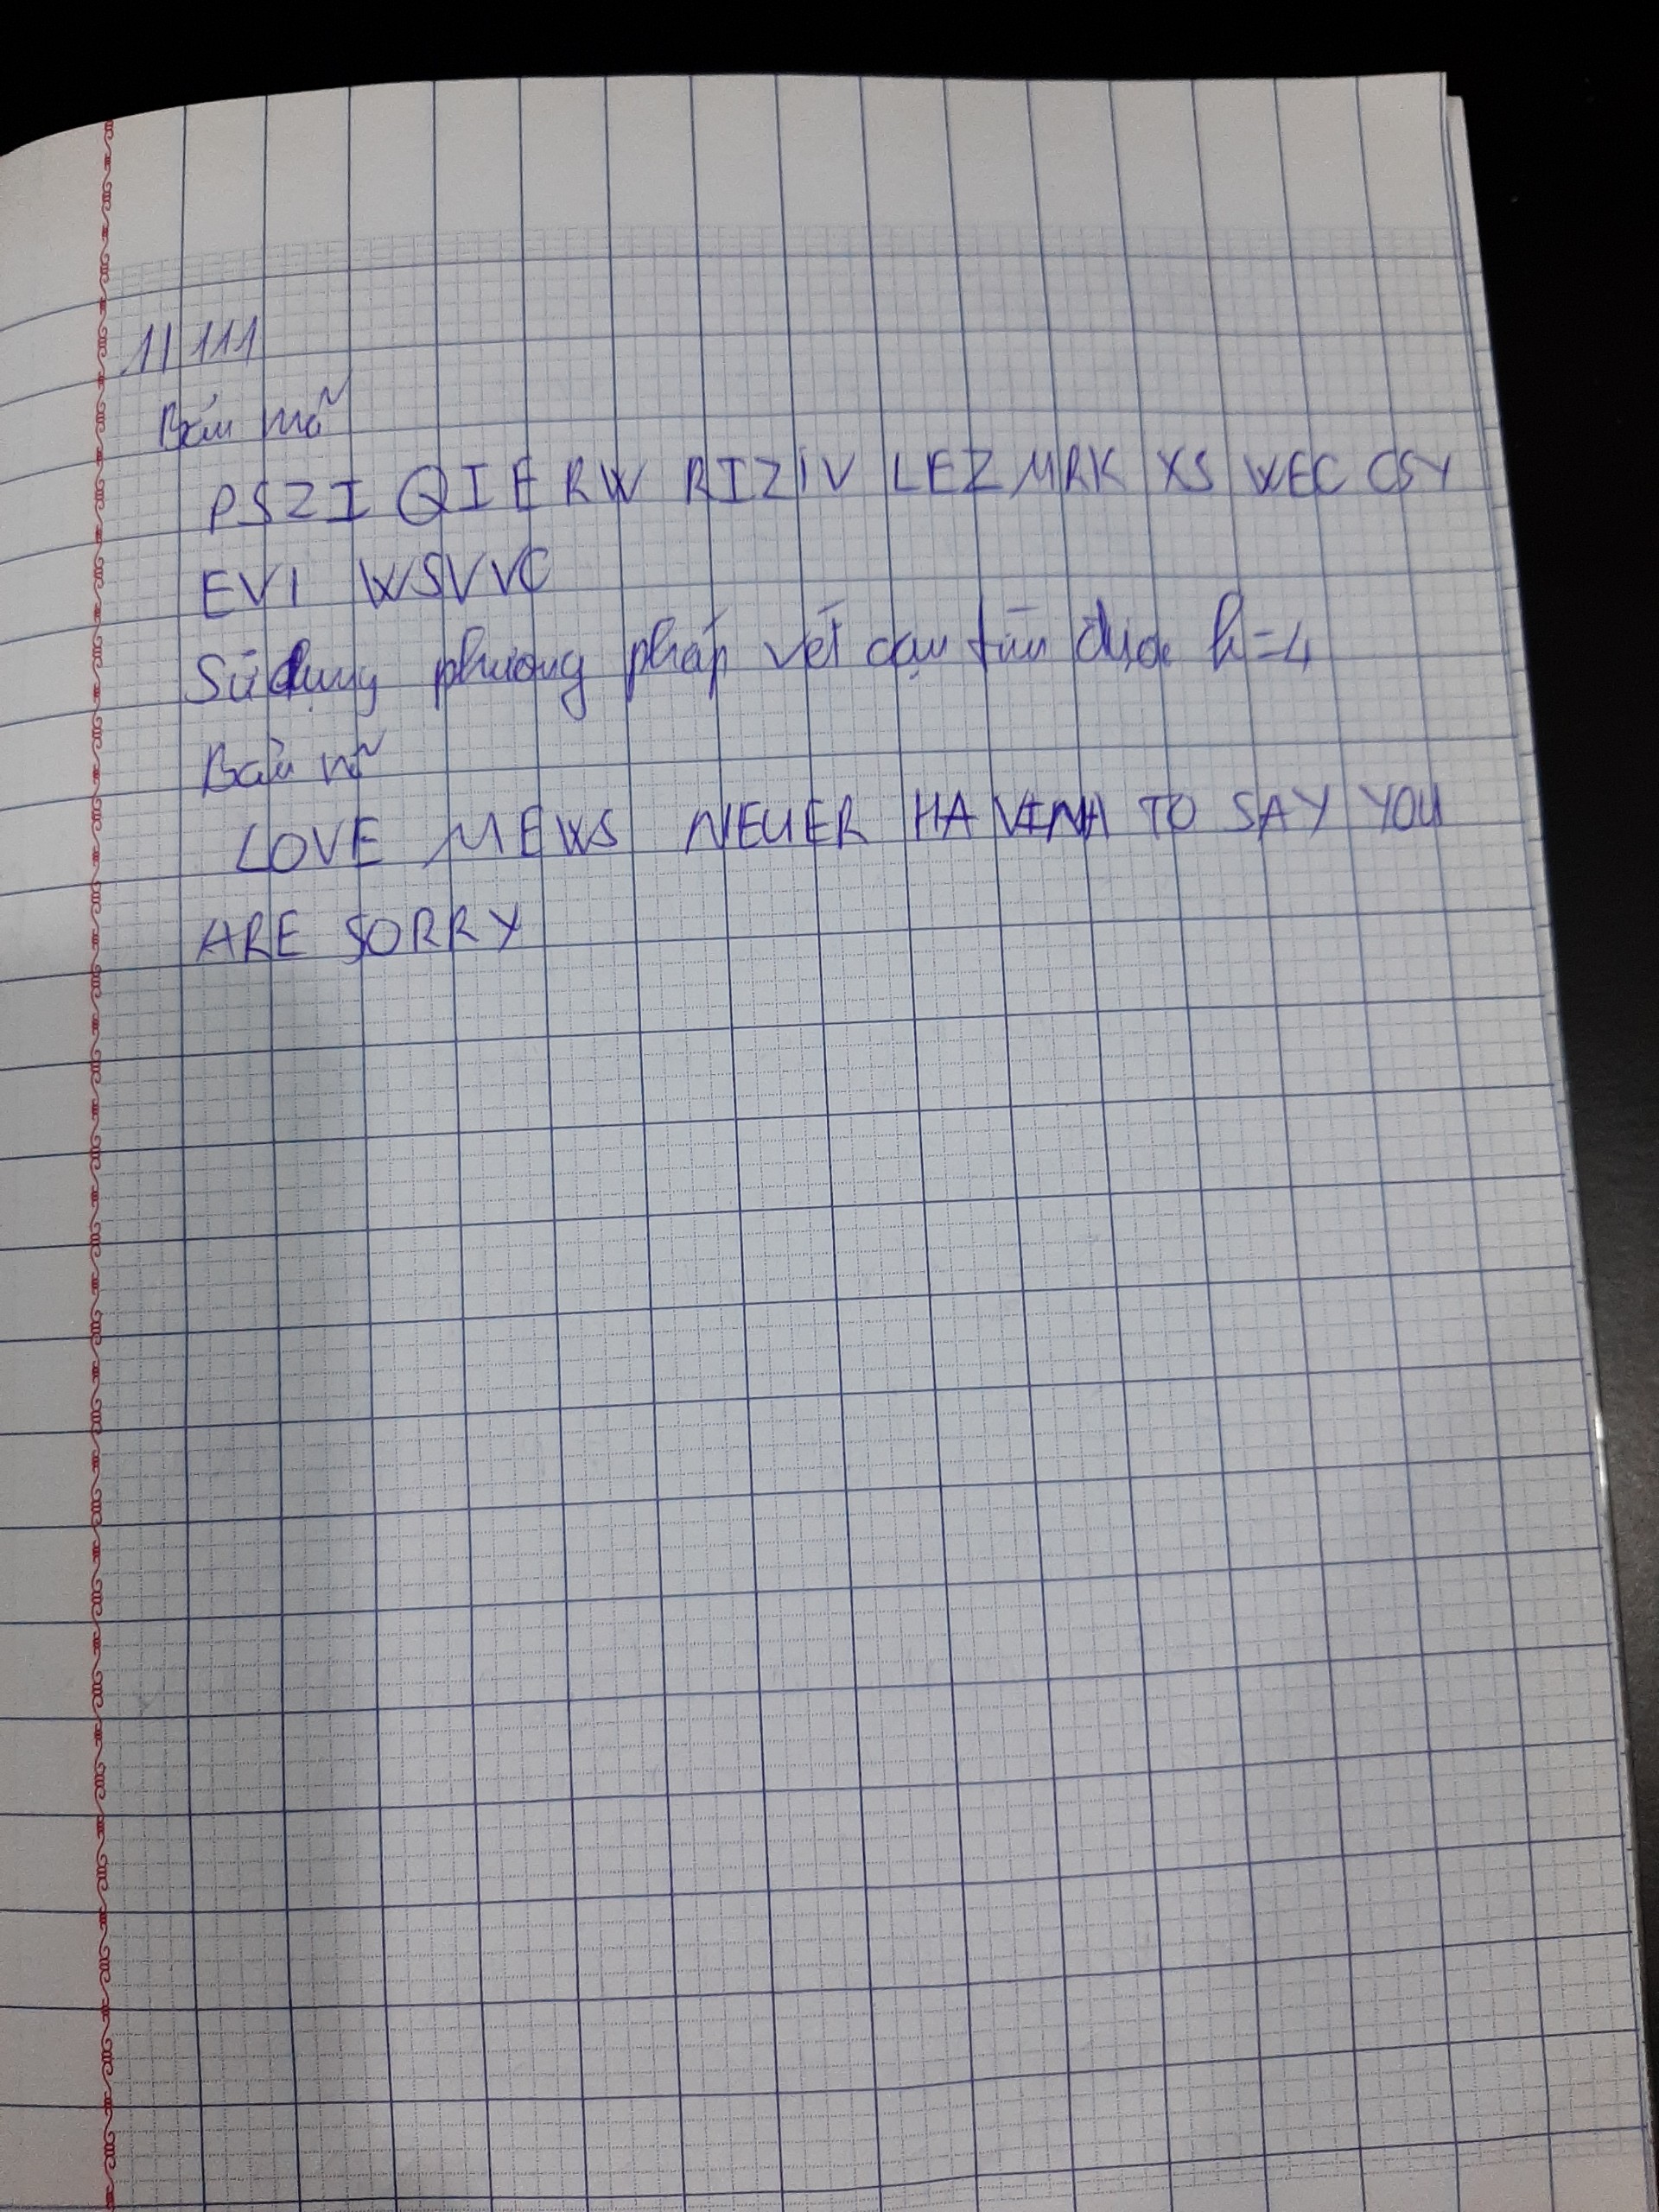 11 111
Bản mã
PSZI QIERW RIZIV LEZMRK XS WEC CSY
EVI WSVVC
Sử dụng phương pháp vét cạn tìm được k=4
Bản mã
LOVE MEWS NEUER HAVINH TO SAY YOU
ARE SORRY